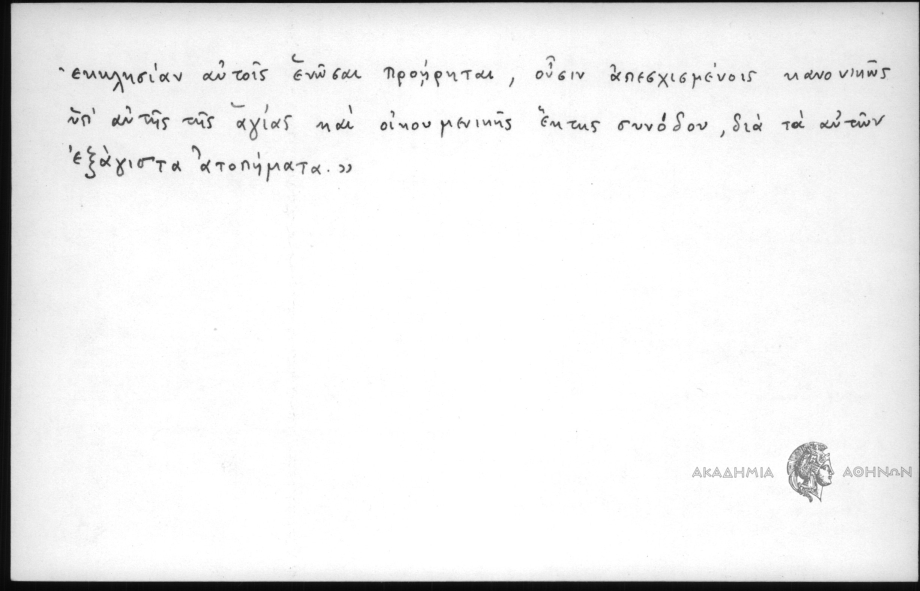 ἐκκλησίαν αὐτοῖς ἑνῶσαι προῄρηται, οὖσιν ἀπεσχισμένοις κανονικῶς
ὑπ' αὐτῆς τῆς ἁγίας καὶ οἰκουμενικῆς ἕκτης συνόδου, διὰ τὰ αὐτῶν
ἐξάγιστα ἀτοπήματα.»
ΑΚΑΔΗΜΙΑ ΑΘΗΝΩΝ